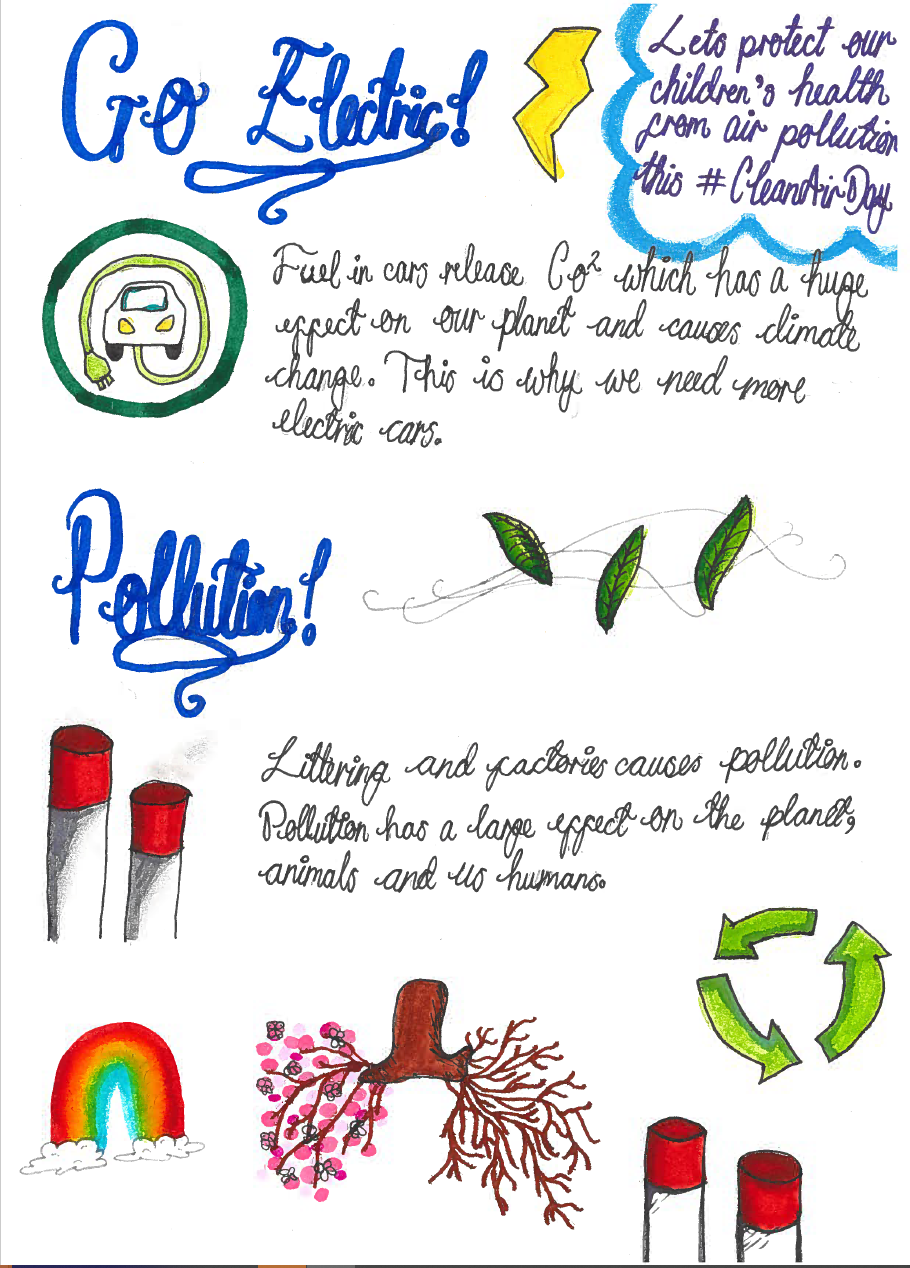 Go Electric!
Lets protect our
children's health
from air pollution
this #CleanAirDay
Fuel in cars release Co² which has a huge
effect on our planet and causes climate
change. This is why we need more
electric cars.
Pollution!
Littering and factories causes pollution.
Pollution has a large effect on the planet,
animals and us humans.